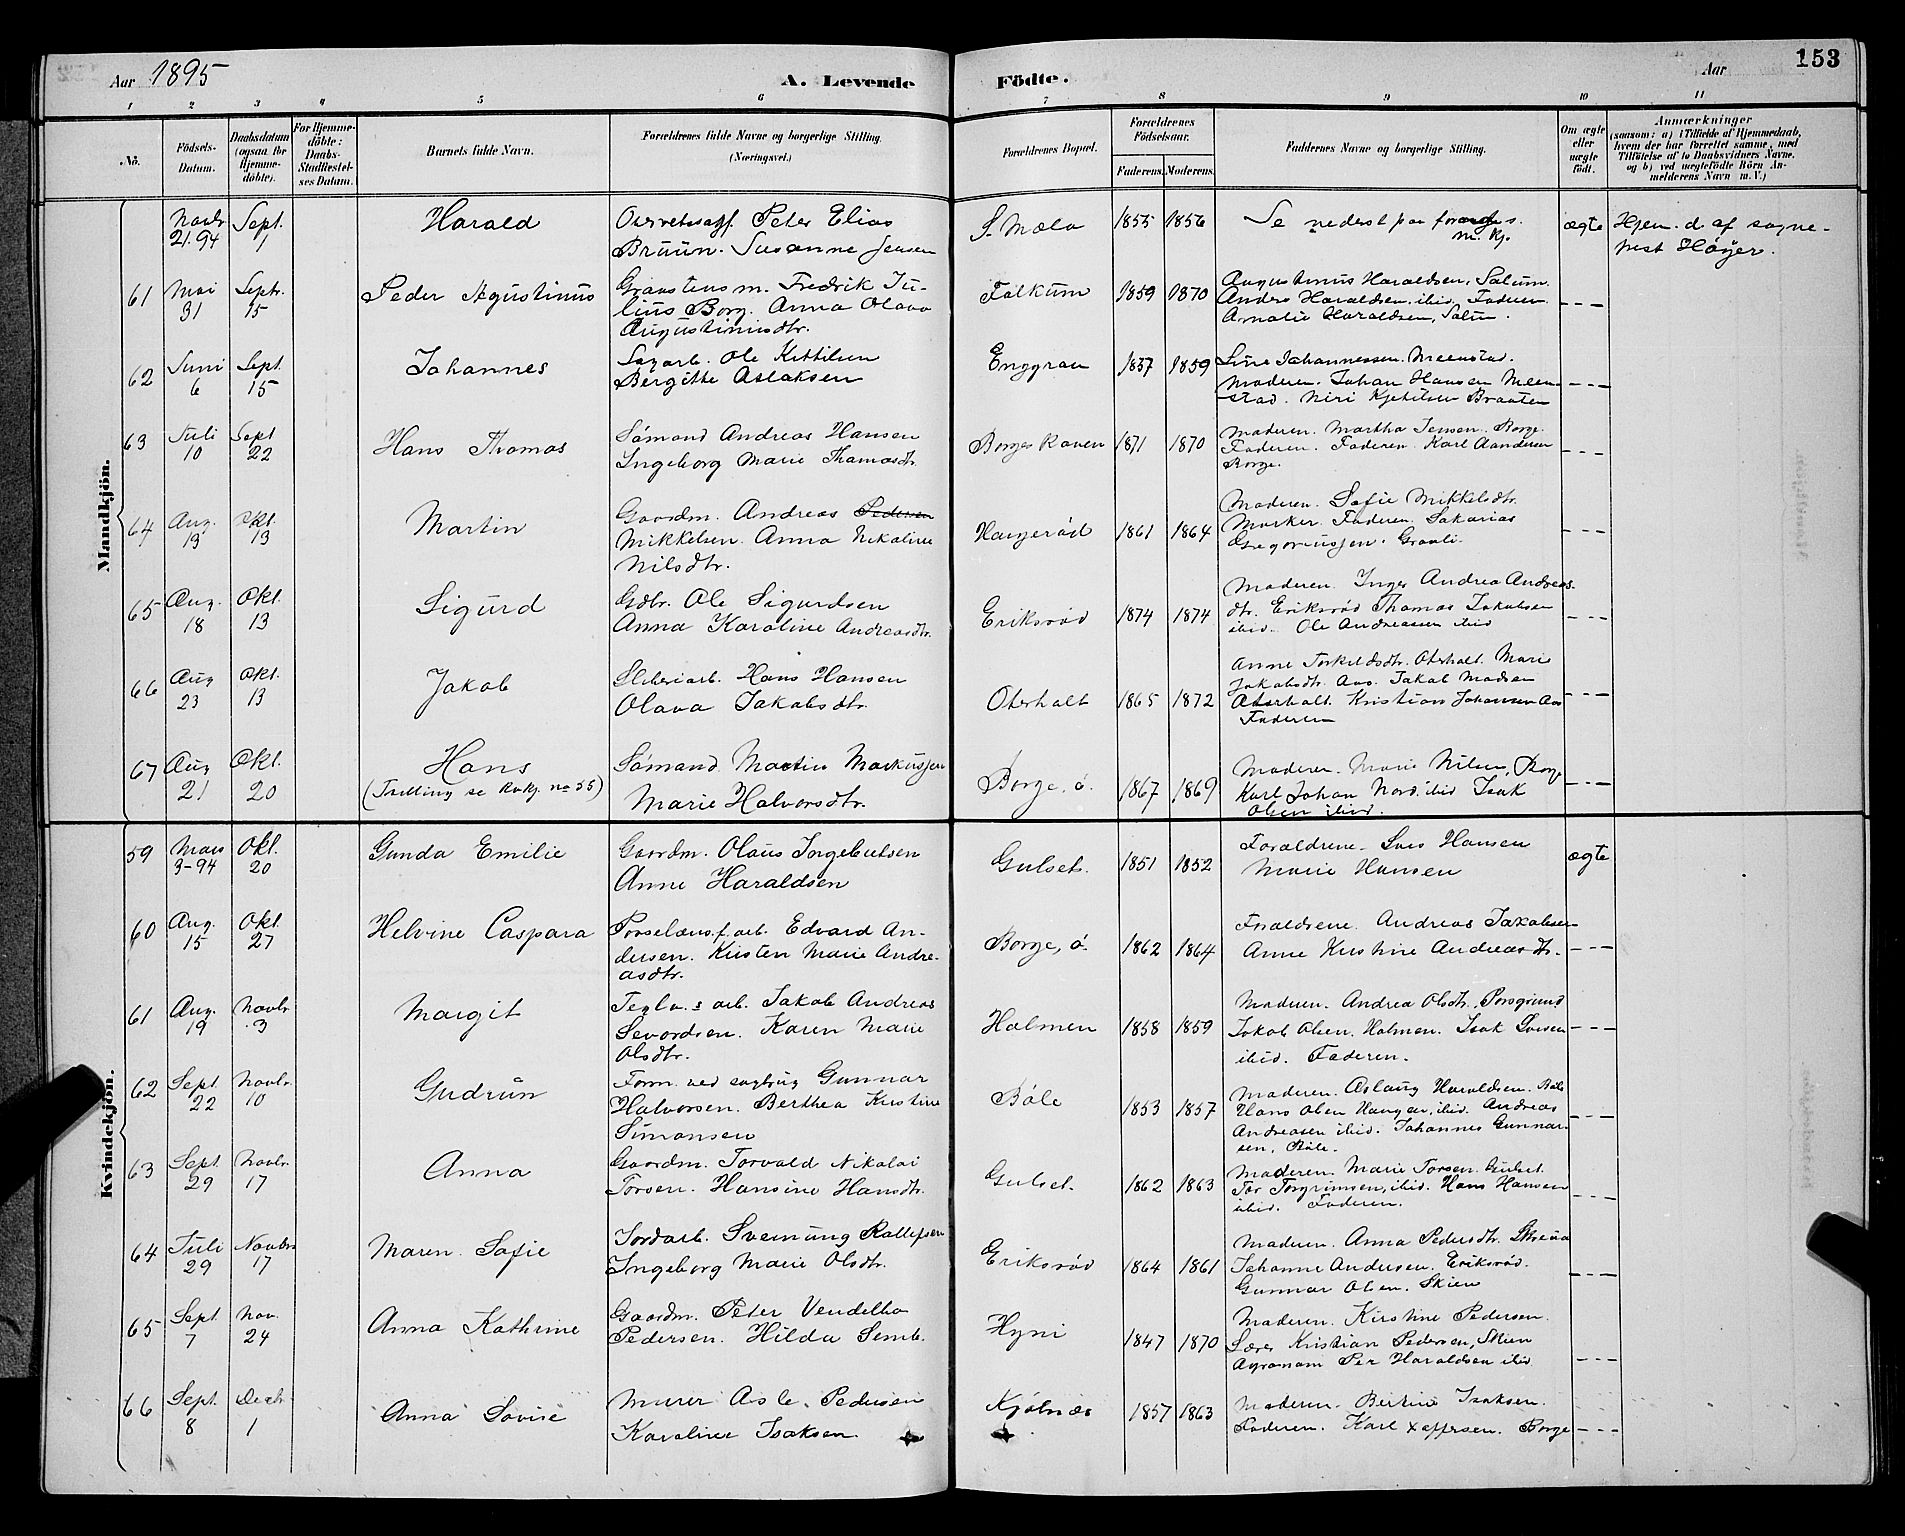 Aar 1895 A. Levende Födte. Aar 153
1 2 3 4 5 6 7 8 9 10 11
No.
Födsels-Datum.
Daabsdatum (ogsaa for Hjemme-döbte).
For Hjemme-döbte: Daabs-Stadfæstel-ses Datum.
Barnets fulde Navn.
Forældrenes fulde Navne og borgerlige Stilling. (Næringsvei.)
Forældrenes Bopæl.
Forældrenes Födselsaar.
Faderens. Moderens.
Faddernes Navne og borgerlige Stilling.
Om ægte eller uægte födt.
Anmærkninger
(saasom: a) i Tilfælde af Hjemmedaab,
hvem der har forrettet samme, med
Tilföielse af to Daabsvidners Navne,
og b) ved uægtefödte Börn An-
melderens Navn m. V.)
Mandkjön.
Novbr 21. 94 Sept. 1 Harald Overretssagf. Peter Elias
Bruun. Susanne Jensen
S. Mæla 1855 1856 Se nederst paa
m. kj.
ægte Hjem. d. af sogne-
prest Höyer.
61 Mai 31 Septr. 15 Peder Agustinus Graastensm. Fredrik Ju-
lius Borg. Anna Olava
Augustinusdtr.
Falkum 1859 1870 Augustinus Haraldsen, Salum
Anders Haraldsen. ibid. Faderen
Amalie Haraldsen, Salum.
62 Juni 6 Sept. 15 Johannes Sagarb. Ole Kittilsen
Bergitte Aslaksen
Enggrav 1857 1859 Line Johannessen. Meenstad.
Moderen. Johan Hansen Meen-
stad. Niri Kjetilsen Braaten
63 Juli 10 Sept 22 Hans Thomas Sömand Andreas Hansen
Ingeborg Marie Thomasdtr.
Borgeskoven 1871 1870 Moderen. Martha Jensen. Borge
Faderen. Faderen. Karl Aandersen
Borge.
64 Aug. 19 Okt. 13 Martin Gaardm. Andreas Pedersen
Mikkelsen. Anna Nikoline
Nilsdtr.
Haugerød 1861 1864 Moderen. Sofie Mikkelsdtr.
Faderen. Sakarias
Gregoriussen. Graali.
65 Aug. 18 Okt. 13 Sigurd Gdbr. Ole Sigurdsen
Anna Karoline Andreasdtr.
Eriksrød 1874 1874 Moderen. Inger Andrea Andreas-
dtr. Eriksrød Thomas Jakobsen
ibid. Ole Andreassen ibid
66 Aug 23 Okt. 13 Jakob Sliberiarb. Hans Hansen
Olava Jakobsdtr.
Oterholt 1865 1872 Anne Torkildsdtr. Oterholt. Marie
Jakobsdtr. Aas. Jakob Madsen
Oterholt. Kristian Johansen Aas
Faderen
67 Aug 21 Okt. 20 Hans
(Tvilling se Kvkj. no 55)
Sömand Martin Markussen
Marie Halvorsdtr.
Borge, ö. 1867 1869 Moderen. Marie Nilsen, Borge
Karl Johan Nord. ibid Isak
Olsen ibid.
Kvindekjön.
59 Mars 3-94 Okt. 20 Gunda Emilie Gaardm. Olaus Ingebretsen
Anne Haraldsen
Gulset. 1851 1852 Forældrene. Lars Hansen
Marie Hansen
ægte
60 Aug. 15 Okt. 27 Helvine Caspara Porselænsf. arb. Edvard An-
dersen. Kirsten Marie Andre-
asdtr.
Borge, ö. 1862 1864 Forældrene. Andreas Jakobsen
Anne Kirstine Andreasdtr.
61 Aug. 19 Novbr. 3 Margit Teglv.s arb. Jakob Andreas
Sevordsen. Karen Marie
Olsdtr.
Holmen 1858 1859 Moderen. Andrea Olsdtr. Porsgrund
Jakob Olsen. Holmen. Isak Iversen
ibid. Faderen.
62 Sept. 22 Novbr. 10 Gudrun Form. ved sagbrug Gunnar
Halvorsen. Berthea Kirstine
Simonsen
Böle 1853 1857 Moderen. Aslaug Haraldsen. Böle
Hans Olsen Haugen, ibid. Andreas
Andreasen ibid. Johannes Gunnar-
sen, Böle.
63 Sept. 29 Novbr. 17 Anna Gaardm. Torvald Nikolai
Torsen. Hansine Hansdtr.
Gulset. 1862 1863 Moderen. Marie Torsen. Gulset.
Tor Torgrimsen, ibid. Hans Hansen
ibid. Faderen.
64 Juli 29 Novbr 17 Maren Sofie Jordarb. Sveinung Rollefsen
Ingeborg Marie Olsdtr.
Eriksrød 1864 1861 Moderen. Anna Pedersdtr.
Johanne Andersen. Eriksrød.
Gunnar Olsen. Skien
65 Sept 7 Nov. 24 Anna Kathrine Gaardm. Peter Vendelbo
Pedersen. Hilda Semb.
Hyni 1847 1870 Moderen. Kirstine Pedersen.
Kristian Pedersen, Skien
Agronom Per Haraldsen ibid
66 Sept. 8 Decbr. 1 Anna Lovise Murer Asle. Pedersen
Karoline Isaksen.
Kjölnæs 1857 1863 Moderen. Bertine Isaksen.
Faderen. Karl Borge